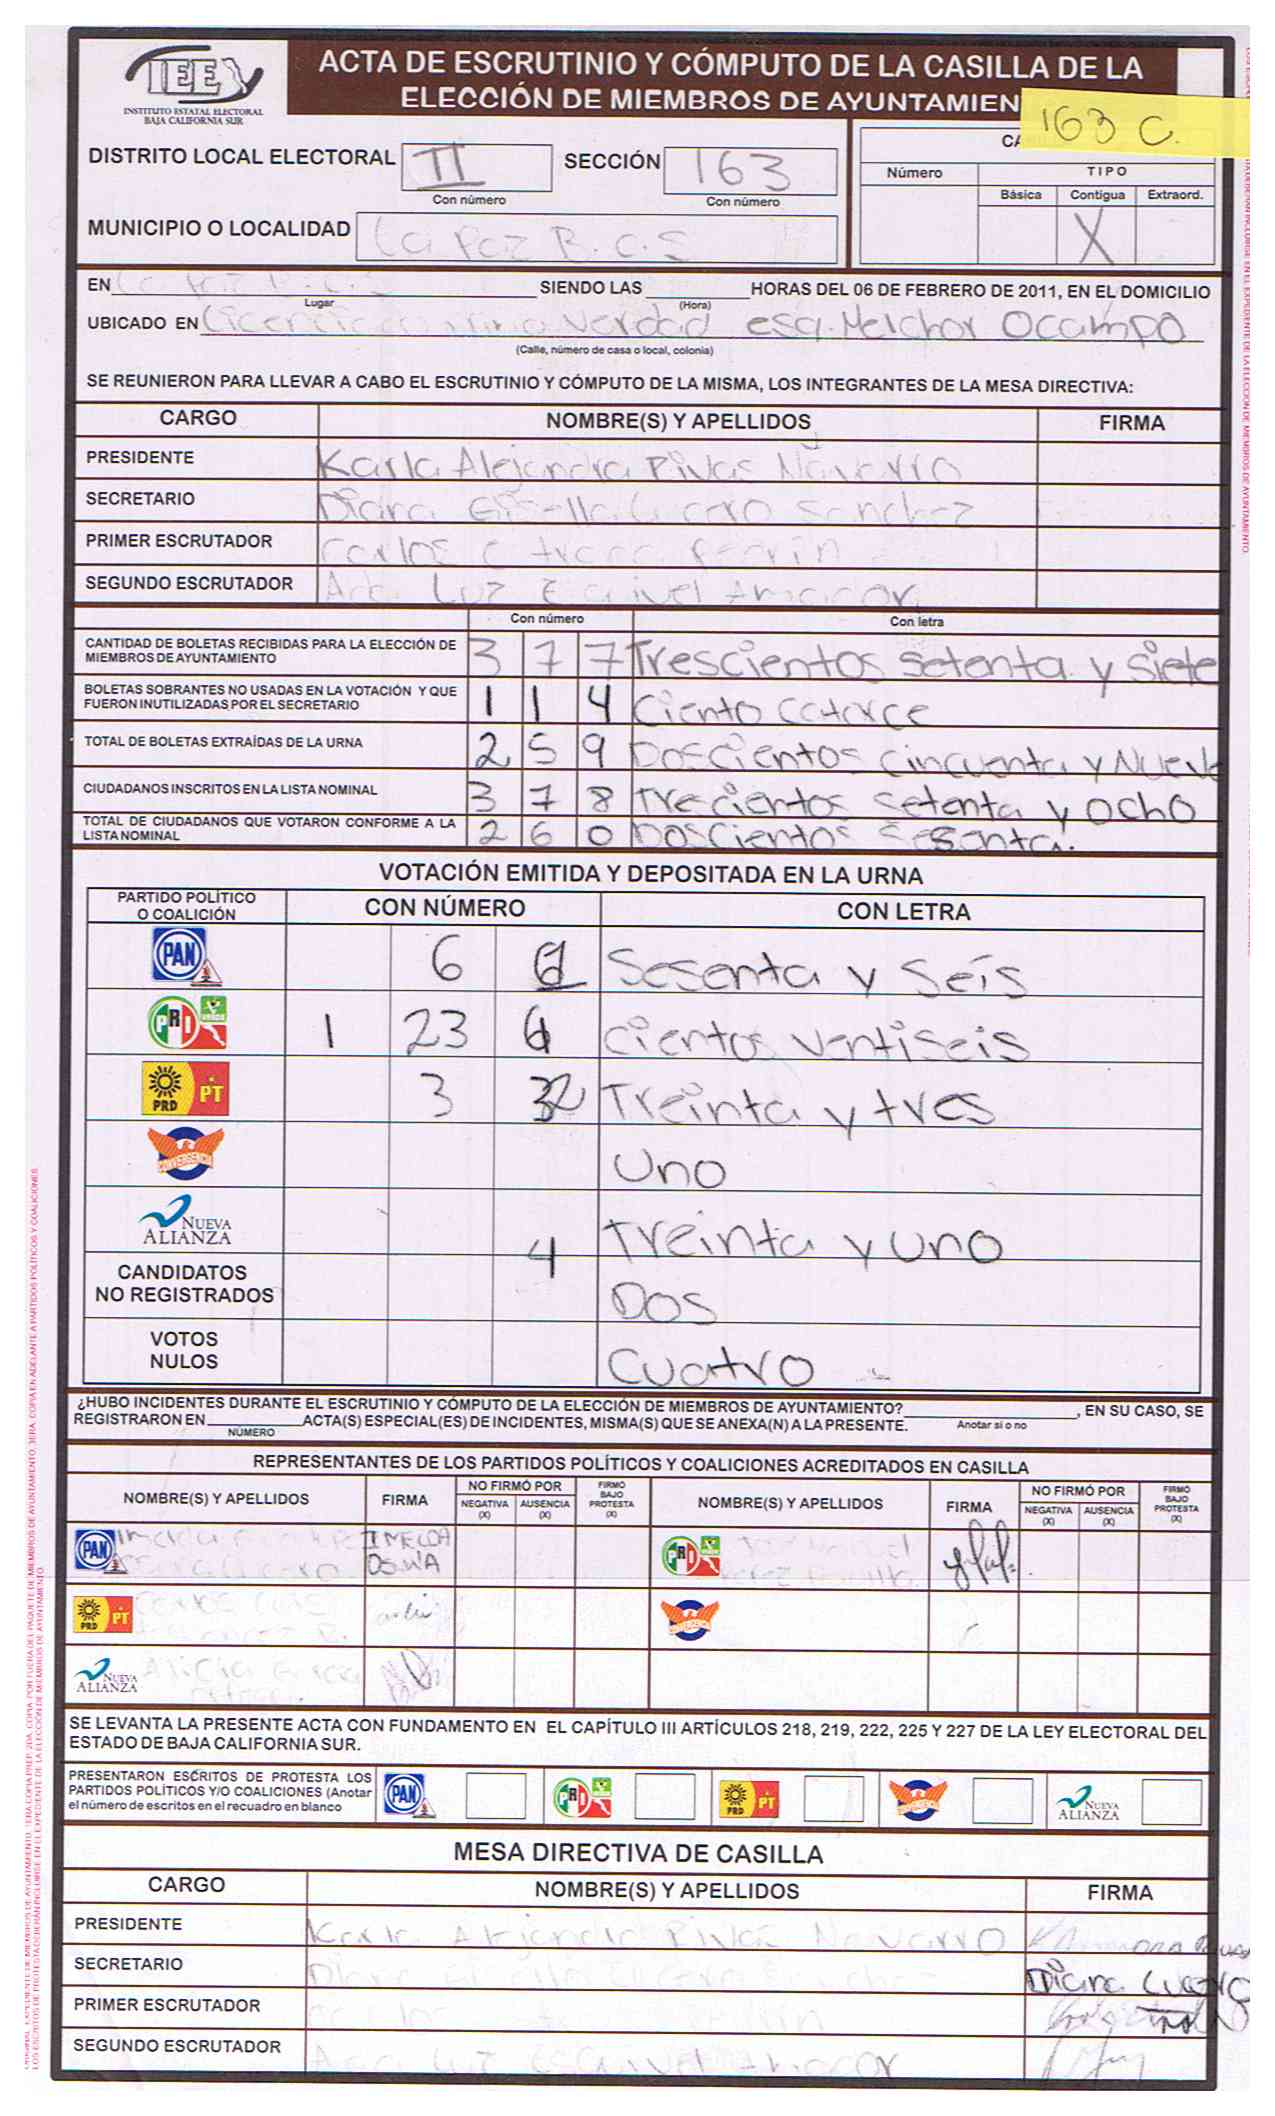 IEE
INSTITUTO ESTATAL ELECTORAL
BAJA CALIFORNIA SUR
ACTA DE ESCRUTINIO Y CÓMPUTO DE LA CASILLA DE LA
ELECCIÓN DE MIEMBROS DE AYUNTAMIEN
163 C.
DISTRITO LOCAL ELECTORAL II SECCIÓN 163
Con número Con número
MUNICIPIO O LOCALIDAD La Paz B.C.S
CA
Número TIPO
Básica Contigua Extraord.
X
EN La Paz B.C.S SIENDO LAS HORAS DEL 06 DE FEBRERO DE 2011, EN EL DOMICILIO
Lugar (Hora)
UBICADO EN Verdad esq. Melchor Ocampo
(Calle, número de casa o local, colonia)
SE REUNIERON PARA LLEVAR A CABO EL ESCRUTINIO Y CÓMPUTO DE LA MISMA, LOS INTEGRANTES DE LA MESA DIRECTIVA:
CARGO NOMBRE(S) Y APELLIDOS FIRMA
PRESIDENTE Karla Alejandra Rivas Navarro
SECRETARIO Diana Sanchez
PRIMER ESCRUTADOR Carlos
SEGUNDO ESCRUTADOR Luz Esquivel Amador
Con número Con letra
CANTIDAD DE BOLETAS RECIBIDAS PARA LA ELECCIÓN DE
MIEMBROS DE AYUNTAMIENTO 3 7 7 Trescientos setenta y siete
BOLETAS SOBRANTES NO USADAS EN LA VOTACIÓN Y QUE
FUERON INUTILIZADAS POR EL SECRETARIO 1 1 4 Ciento catorce
TOTAL DE BOLETAS EXTRAÍDAS DE LA URNA 2 5 9 Doscientos cincuenta y Nueve
CIUDADANOS INSCRITOS EN LA LISTA NOMINAL 3 7 8 Trecientos setenta y ocho
TOTAL DE CIUDADANOS QUE VOTARON CONFORME A LA
LISTA NOMINAL 2 6 0 Doscientos Sesenta.
VOTACIÓN EMITIDA Y DEPOSITADA EN LA URNA
PARTIDO POLÍTICO
O COALICIÓN CON NÚMERO CON LETRA
PAN 6 6 Sesenta y Seis
PRI 1 23 6 Cientos ventiseis
PRD PT 3 32 Treinta y tres
CONVERGENCIA Uno
NUEVA
ALIANZA 4 Treinta y uno
CANDIDATOS
NO REGISTRADOS Dos
VOTOS
NULOS Cuatro
¿HUBO INCIDENTES DURANTE EL ESCRUTINIO Y CÓMPUTO DE LA ELECCIÓN DE MIEMBROS DE AYUNTAMIENTO? , EN SU CASO, SE
REGISTRARON EN ACTA(S) ESPECIAL(ES) DE INCIDENTES, MISMA(S) QUE SE ANEXA(N) A LA PRESENTE. Anotar si o no
NÚMERO
REPRESENTANTES DE LOS PARTIDOS POLÍTICOS Y COALICIONES ACREDITADOS EN CASILLA
NOMBRE(S) Y APELLIDOS FIRMA NO FIRMÓ POR NEGATIVA (X) AUSENCIA (X) FIRMÓ BAJO PROTESTA (X) NOMBRE(S) Y APELLIDOS FIRMA NO FIRMÓ POR NEGATIVA (X) AUSENCIA (X) FIRMÓ BAJO PROTESTA (X)
PAN IMELDA PRI
PRD PT
NUEVA
ALIANZA Alicia
SE LEVANTA LA PRESENTE ACTA CON FUNDAMENTO EN EL CAPÍTULO III ARTÍCULOS 218, 219, 222, 225 Y 227 DE LA LEY ELECTORAL DEL
ESTADO DE BAJA CALIFORNIA SUR.
PRESENTARON ESCRITOS DE PROTESTA LOS
PARTIDOS POLÍTICOS Y/O COALICIONES (Anotar
el número de escritos en el recuadro en blanco
PAN PRI PRD PT NUEVA ALIANZA
MESA DIRECTIVA DE CASILLA
CARGO NOMBRE(S) Y APELLIDOS FIRMA
PRESIDENTE Karla Alejandra Rivas Navarro
SECRETARIO Diana
PRIMER ESCRUTADOR
SEGUNDO ESCRUTADOR Luz Esquivel Amador